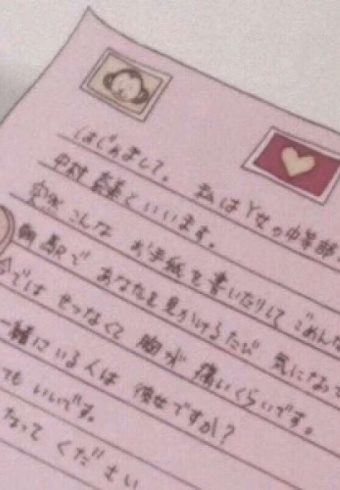 はじめまして。 私はY女の中等部
中村 といいます。
突然 こんな お手紙を書いたりして ごめんな
朝 駅で あなたを見かけるたび 気になって
では せつなくて 胸が 痛いくらいです。
一緒にいる人は 彼女ですか？
てもいいです。
なって ください